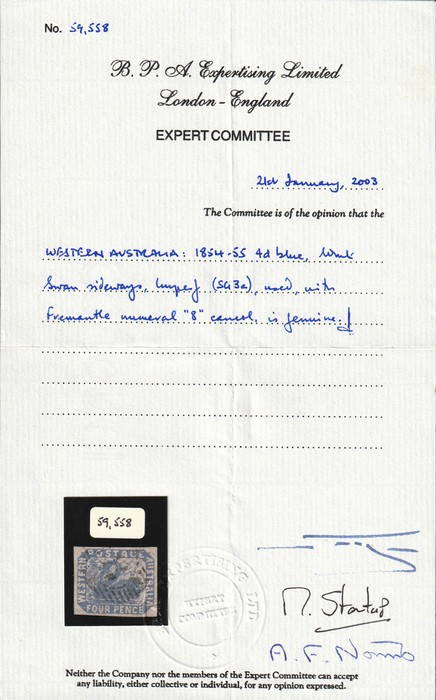 No. 59,558
B. P. A. Expertising Limited
London - England
EXPERT COMMITTEE
21st January, 2003
The Committee is of the opinion that the
WESTERN AUSTRALIA: 1854-55 4d blue, wmk
Swan sideways, imperf (SG3a), used, with
Fremantle numeral "8" cancel, is genuine.
59,558
WESTERN
POSTAGE
AUSTRALIA
FOUR PENCE
EXPERT
COMMITTEE
M. Startup
A. F. Norris
Neither the Company nor the members of the Expert Committee can accept
any liability, either collective or individual, for any opinion expressed.